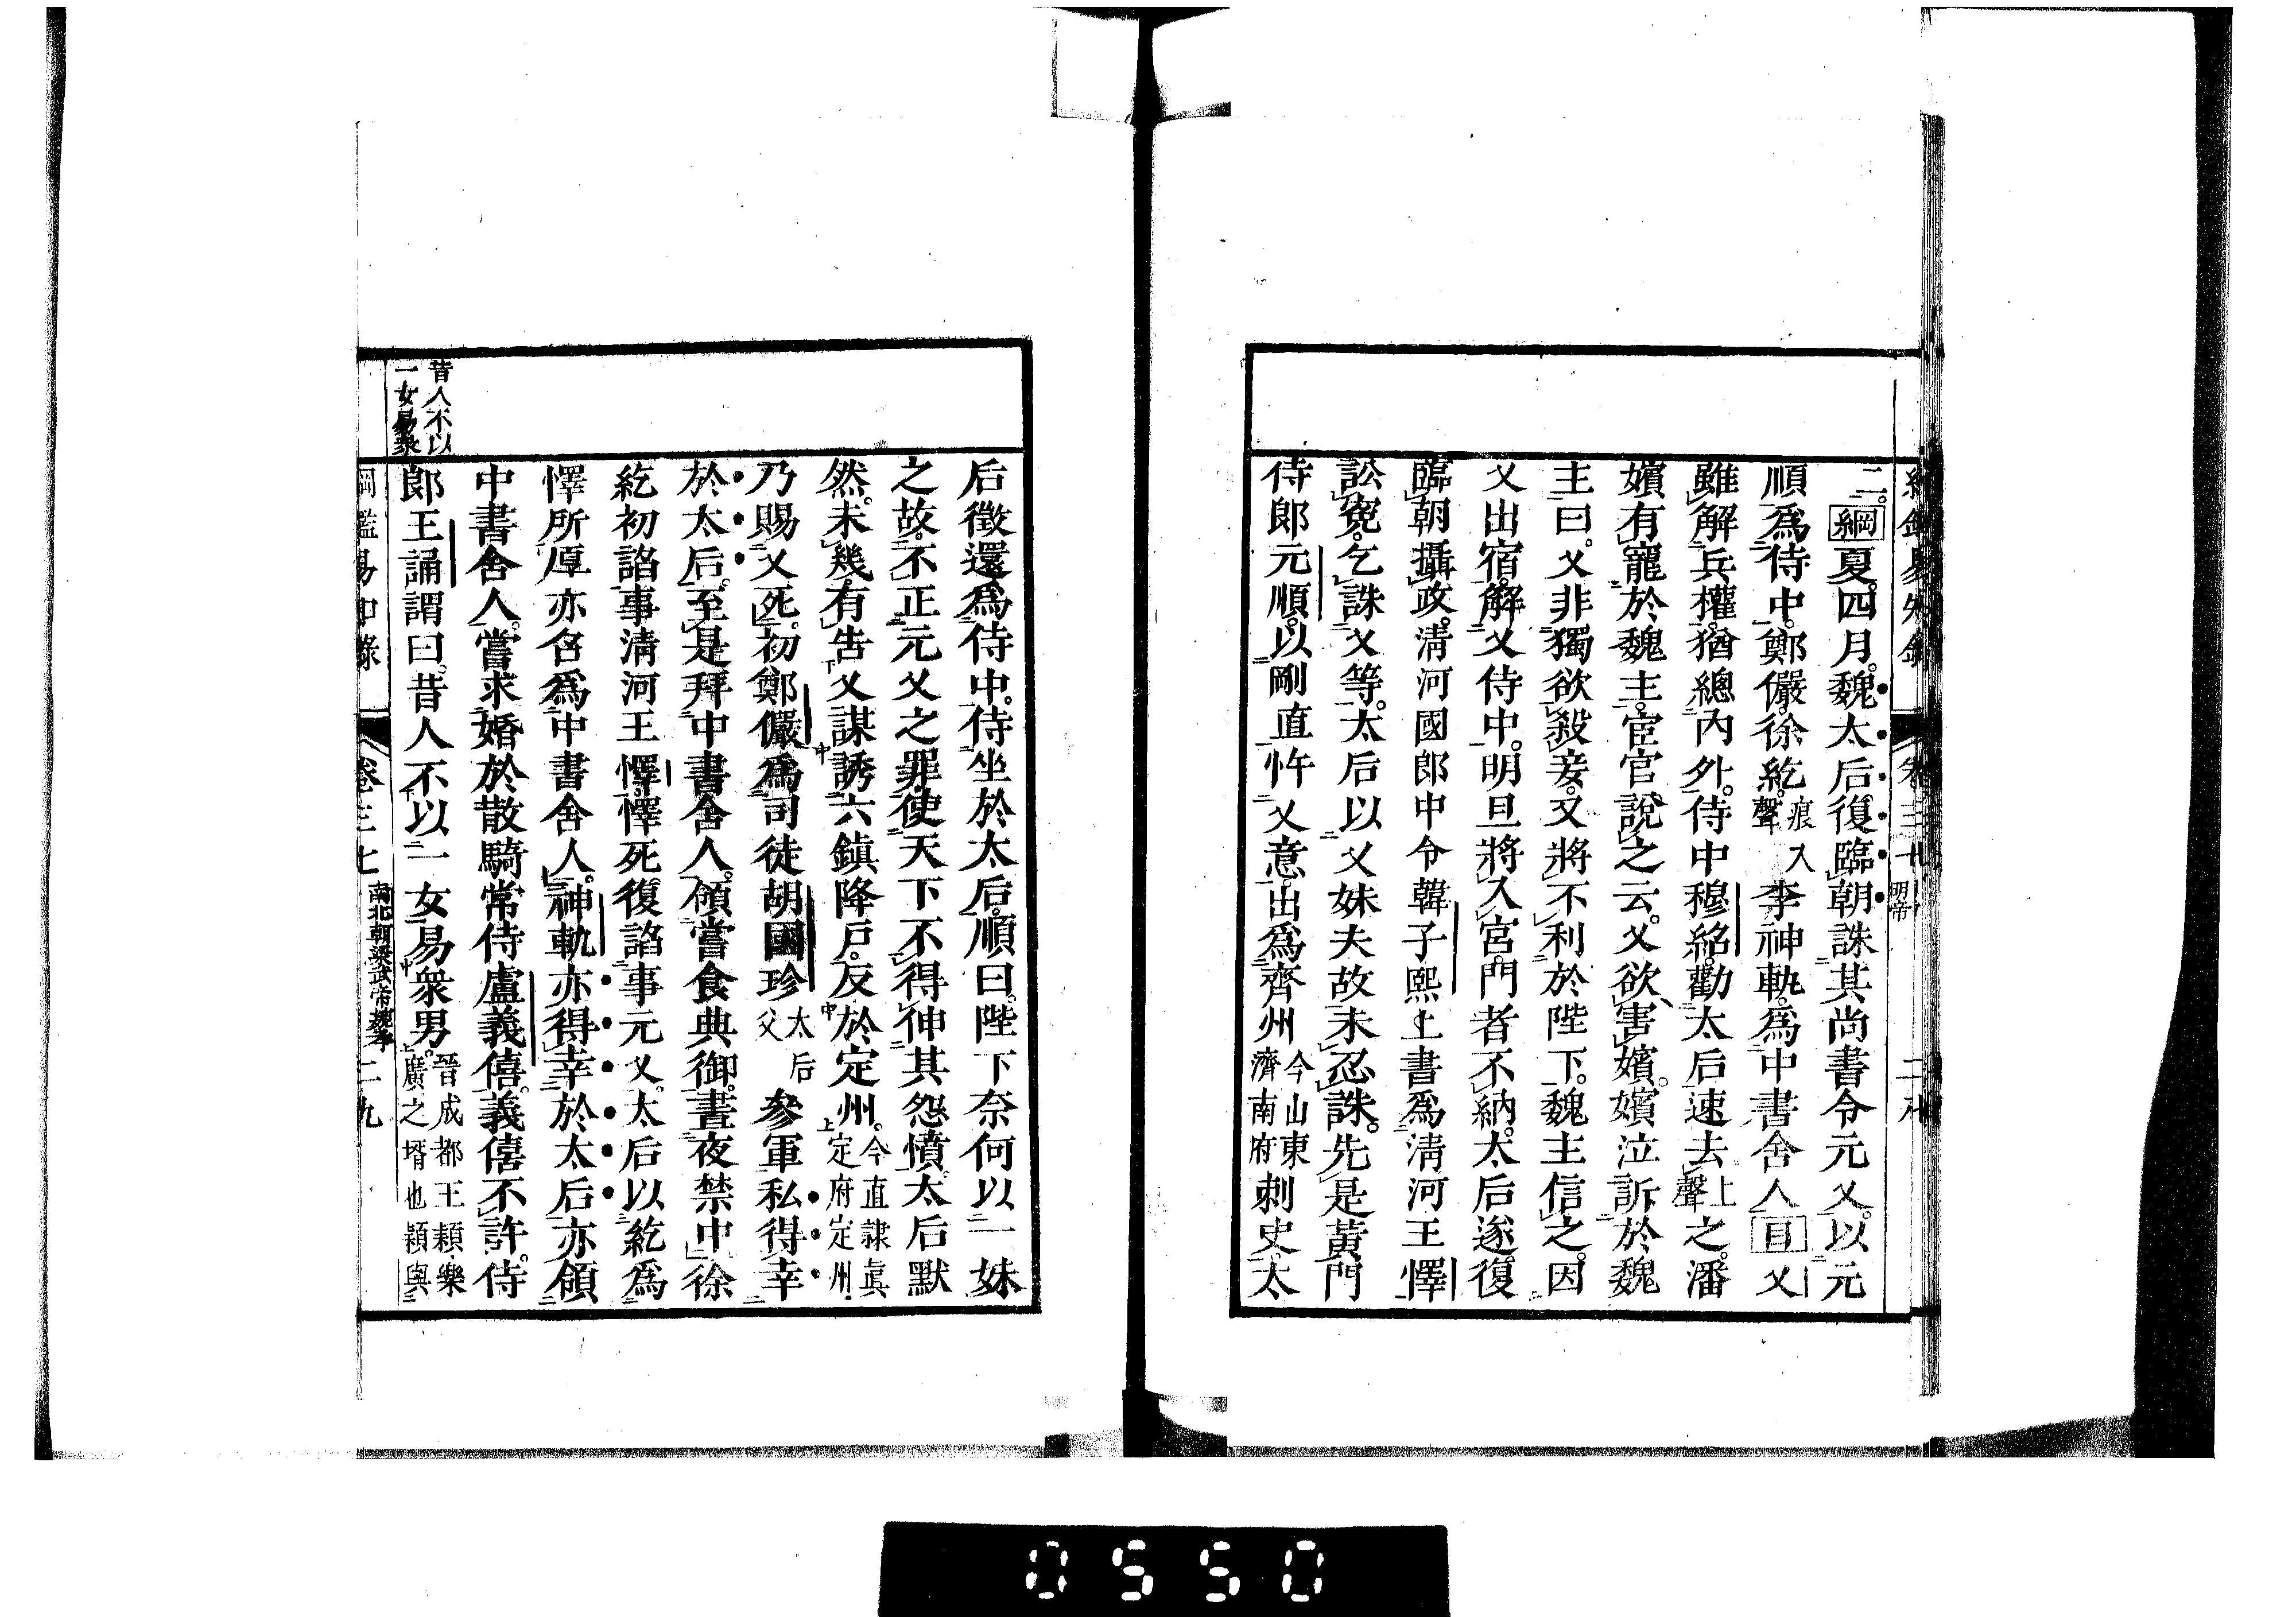 二。綱夏。四月。魏太后。復臨朝誅其尚書令元乂。以元
順爲侍中。鄭儼。徐紇。痕入聲李神軌。爲中書舍人目乂
雖解兵權。猶總內外。侍中穆紹。勸太后速去上聲之。潘
嬪有寵於魏主。宦官說之云。乂欲害嬪。嬪泣訴於魏
主曰。乂非獨欲殺妾。又將不利於陛下。魏主信之。因
乂出宿。解乂侍中。明旦將入宮。門者不納。太后遂。復
臨朝攝政。淸河國郎中令韓子熙上書爲淸河王懌
訟冤。乞誅乂等。太后以乂妹夫故未忍誅。先是黃門
侍郎元順。以剛直忤乂意。出爲齊州今山東濟南府刺史。太
后徵還爲侍中。侍坐於太后。順曰。陛下奈何以一妹
之故。不正元乂之罪。使天下不得伸其怨憤。太后默
然。未幾。有告乂謀誘六鎭降戶。反於定州。今直隷眞定府定州
乃賜乂死。初鄭儼爲司徒胡國珍太后父參軍私得幸
於太后。至是拜中書舍人。領嘗食典御。晝夜禁中徐
紇初諂事淸河王懌。懌死。復諂事元乂。太后以紇爲
懌所厚亦召爲中書舍人。神軌亦得幸於太后亦領
中書舍人。嘗求婚於散騎常侍盧義僖。義僖不許。侍
郎王誦謂曰。昔人不以一女易衆男。晉成都王穎樂廣之壻也穎與
昔人不以
一女易衆
卷三七
南北朝梁武帝
二九